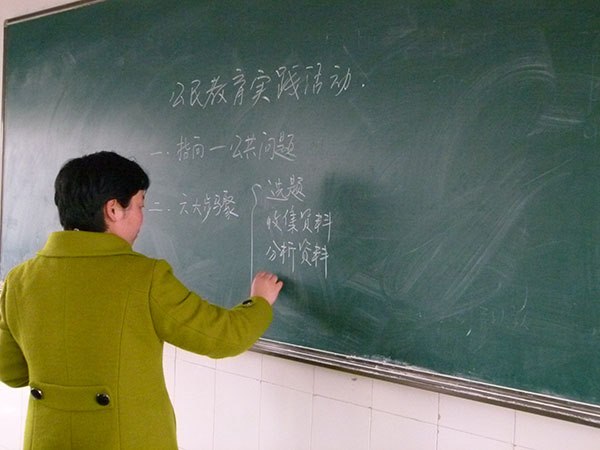 公民教育实践活动.
一.指向—公共问题
二.六大步骤
选题
收集资料
分析资料